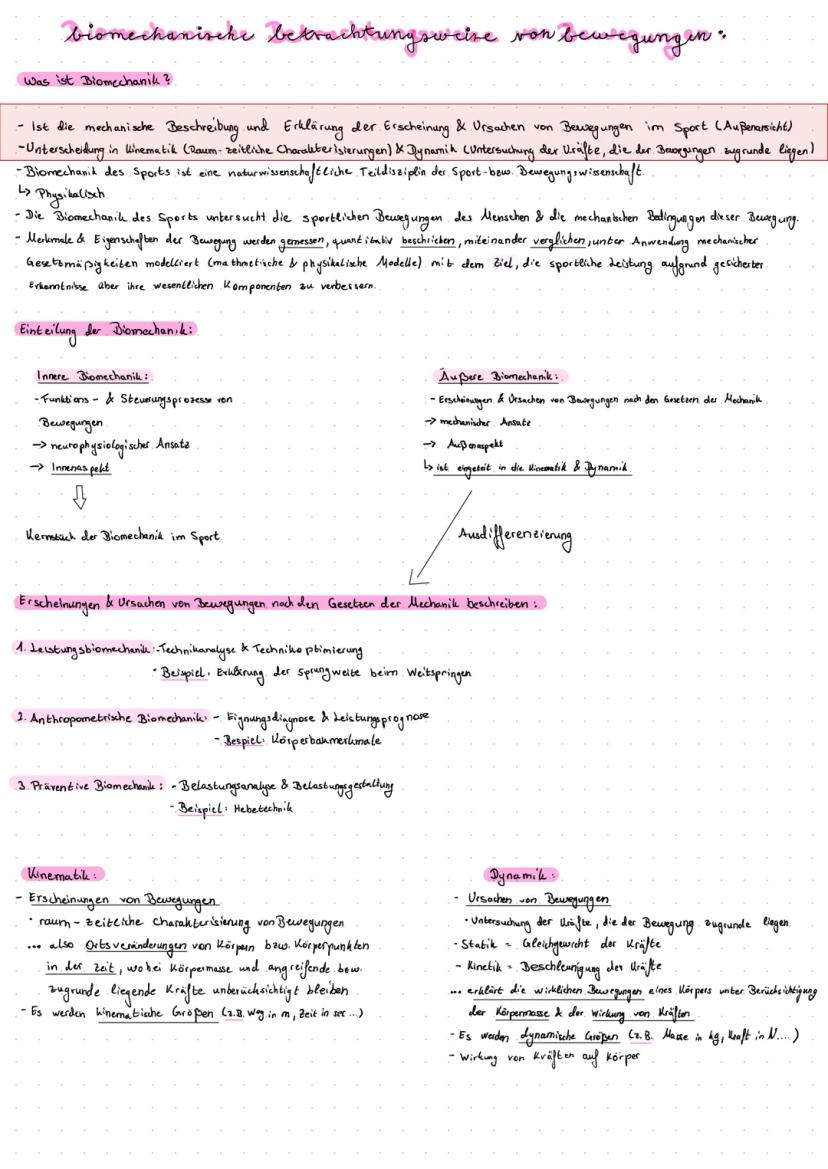 biomechanische betrachtungsweise von bewegungen:
Was ist Biomechanik?
- Ist die mechanische Beschreibung und Erklärung der Erscheinung & Ursachen von Bewegungen im Sport (Außenansicht)
- Unterscheidung in Kinematik (Raum-zeitliche Charakterisierungen) & Dynamik (Untersuchung der Kräfte, die der Bewegungen zugrunde liegen)
- Biomechanik des Sports ist eine naturwissenschaftliche Teildisziplin der Sport- bzw. Bewegungswissenschaft.
↳ Physikalisch
- Die Biomechanik des Sports untersucht die sportlichen Bewegungen des Menschen & die mechanischen Bedingungen dieser Bewegung.
- Merkmale & Eigenschaften der Bewegung werden gemessen, quantitativ beschrieben, miteinander verglichen, unter Anwendung mechanischer
Gesetzmäßigkeiten modelliert (mathmetische & physikalische Modelle) mit dem Ziel, die sportliche Leistung aufgrund gesicherter
Erkenntnisse über ihre wesentlichen Komponenten zu verbessern.
Einteilung der Biomechanik:
Innere Biomechanik:
- Funktions- & Steuerungsprozesse von
Bewegungen
→ neurophysiologischer Ansatz
→ Innenaspekt
⇩
Kernstück der Biomechanik im Sport
Äußere Biomechanik:
- Erscheinungen & Ursachen von Bewegungen nach den Gesetzen der Mechanik
→ mechanischer Ansatz
→ Außenaspekt
↳ ist eingeteit in die Kinematik & Dynamik
Ausdifferenzierung
Erscheinungen & Ursachen von Bewegungen nach den Gesetzen der Mechanik beschreiben:
1. Leistungsbiomechanik: - Technikanalyse & Technikoptimierung
· Beispiel: Erklärung der Sprungweite beim Weitspringen
2. Anthropometrische Biomechanik: - Eignungsdiagnose & Leistungsprognose
- Bespiel: Körperbaumerkmale
3. Präventive Biomechanik: - Belastungsanalyse & Belastungsgestaltung
- Beispiel: Hebetechnik
Kinematik:
- Erscheinungen von Bewegungen
· raum-zeitliche Charakterisierung von Bewegungen
... also Ortsveränderungen von Körpern bzw. Körperpunkten
in der Zeit, wobei Körpermasse und angreifende bzw.
zugrunde liegende Kräfte unberücksichtigt bleiben
- Es werden kinematische Größen (z.B. Weg in m, Zeit in sec ...)
Dynamik:
- Ursachen von Bewegungen
· Untersuchung der Kräfte, die der Bewegung zugrunde liegen
- Statik = Gleichgewicht der Kräfte
- Kinetik = Beschleunigung der Kräfte
... erklärt die wirklichen Bewegungen eines Körpers unter Berücksichtigung
der Körpermasse & der Wirkung von Kräften
- Es werden dynamische Größen (z.B. Masse in kg, Kraft in N....)
- Wirkung von Kräften auf Körper